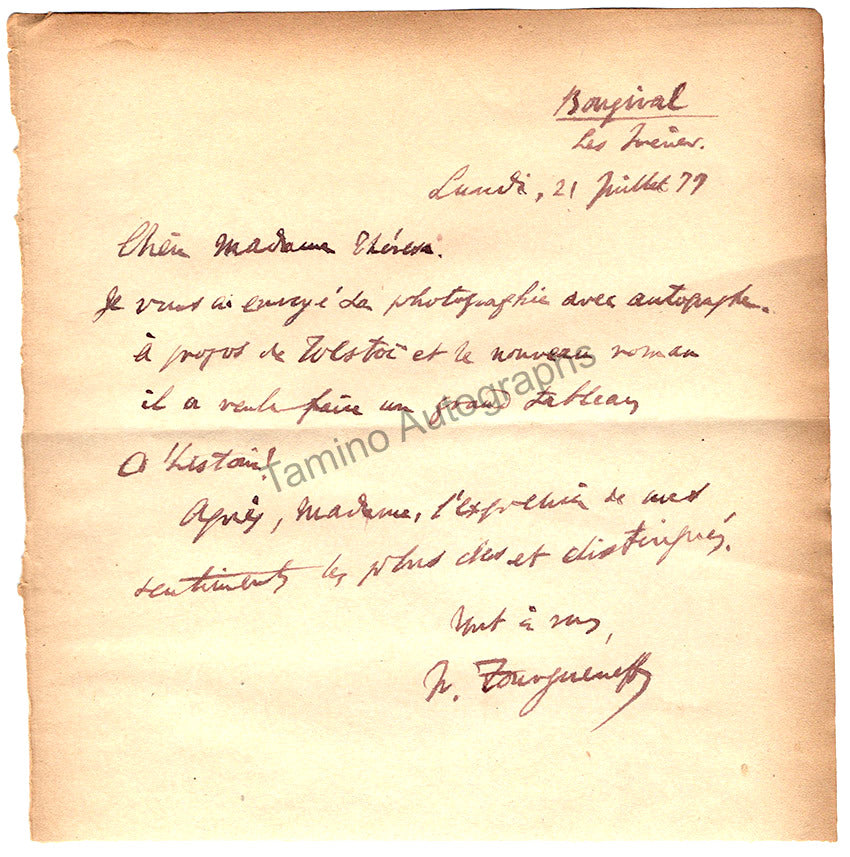 Bougival
Les Frênes.
Lundi, 21 Juillet 79
Chère Madame Thérèse.
Je vous ai envoyé la photographie avec autographe.
à propos de Tolstoï et le nouveau roman
il a voulu faire un grand tableau
Tamino Autographs
Agréez, Madame, l'expression de mes
sentiments les plus et distingués.
Tout à vous,
Tourguéneff